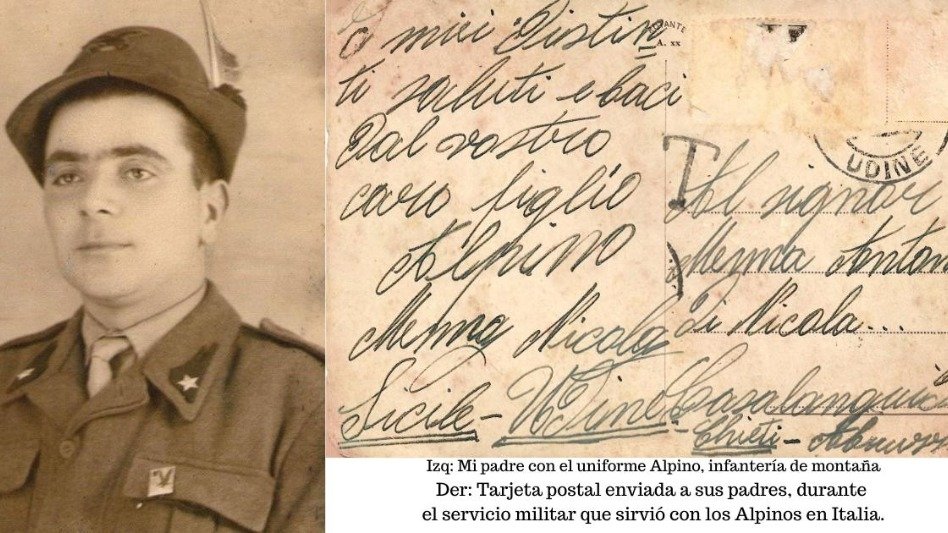 miei Distin
ti saluti e baci
Dal vostro
caro figlio
Alpino
Menna Nicola
Sicile - Udine
A. XX
UDINE
T
Al signor
Menna
di Nicola...
Chieti -
Izq: Mi padre con el uniforme Alpino, infantería de montaña
Der: Tarjeta postal enviada a sus padres, durante
el servicio militar que sirvió con los Alpinos en Italia.